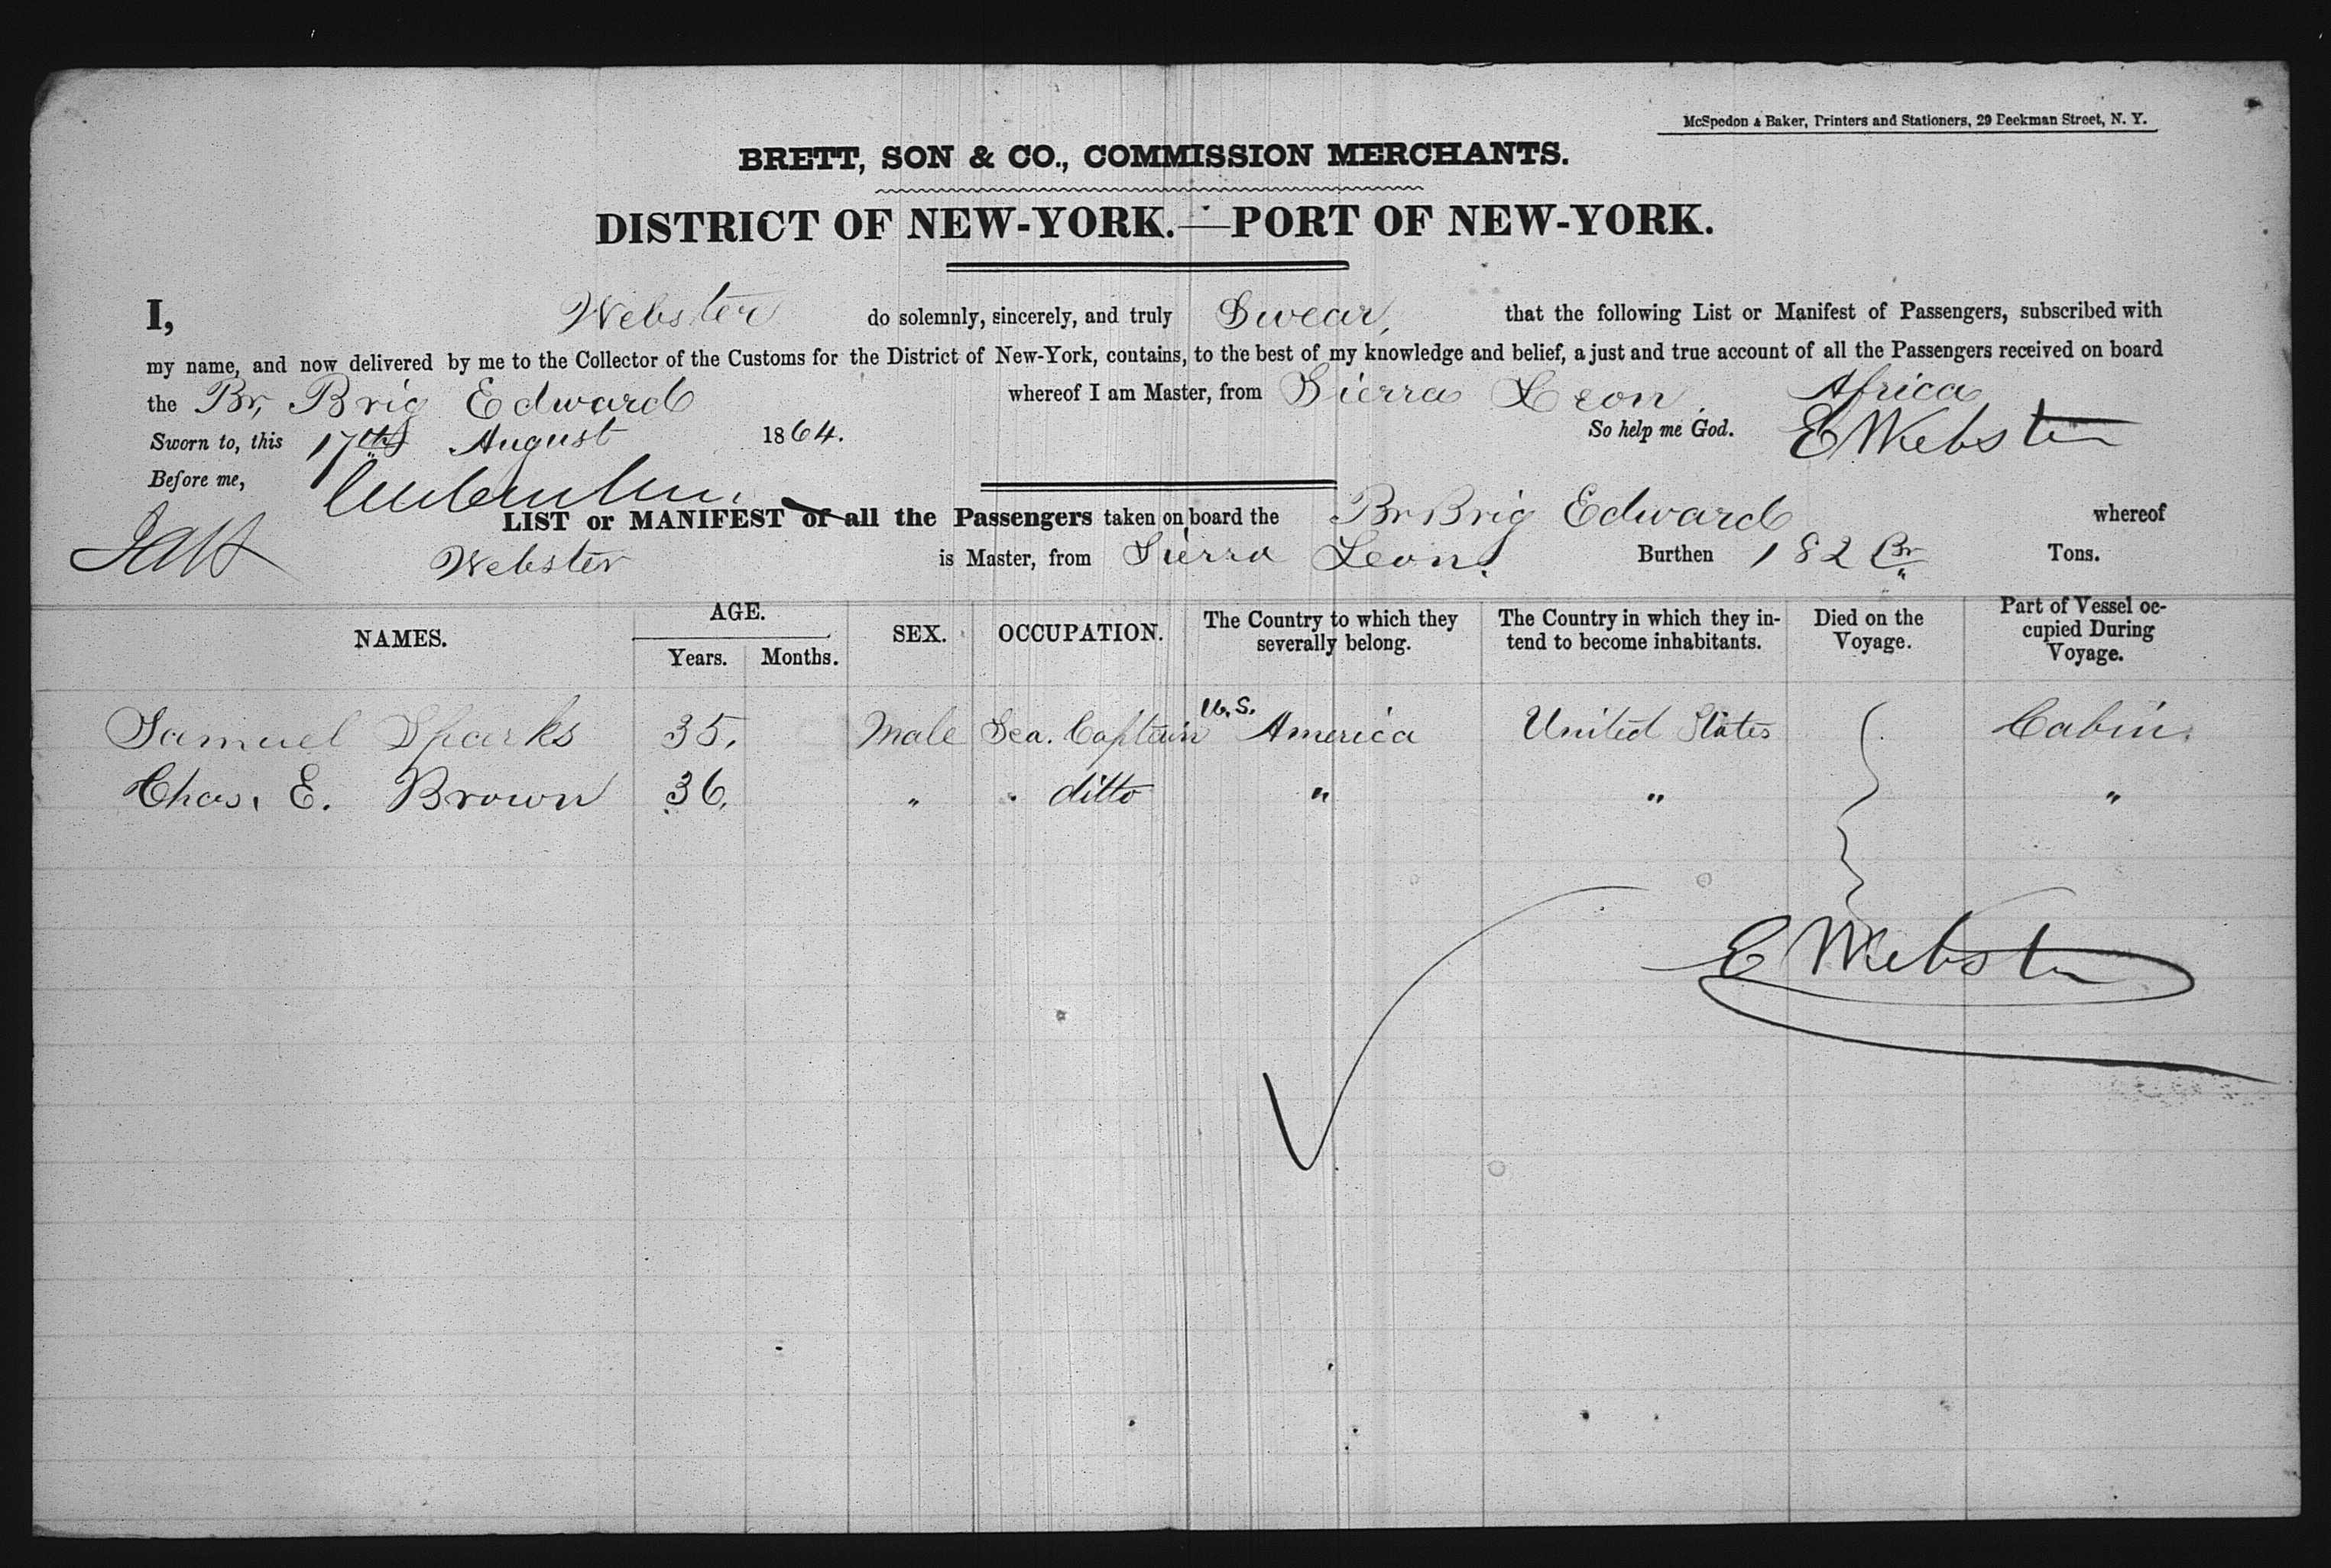 McSpedon & Baker, Printers and Stationers, 29 Beekman Street, N. Y.
BRETT, SON & CO., COMMISSION MERCHANTS.
DISTRICT OF NEW-YORK.—PORT OF NEW-YORK.
I, Webster do solemnly, sincerely, and truly Swear, that the following List or Manifest of Passengers, subscribed with
my name, and now delivered by me to the Collector of the Customs for the District of New-York, contains, to the best of my knowledge and belief, a just and true account of all the Passengers received on board
the Br, Brig Edward whereof I am Master, from Sierra Leon. Africa
Sworn to, this 17th August 1864. So help me God. E Webster
Before me,
LIST or MANIFEST of all the Passengers taken on board the Br Brig Edward whereof
Webster is Master, from Sierra Leon. Burthen 182 Br Tons.
NAMES. AGE. Years. Months. SEX. OCCUPATION. The Country to which they severally belong. The Country in which they intend to become inhabitants. Died on the Voyage. Part of Vessel occupied During Voyage.
Samuel Sparks 35. Male Sea. Captain U.S. America United States Cabin.
Chas. E. Brown 36. " ditto " " "
E Webster